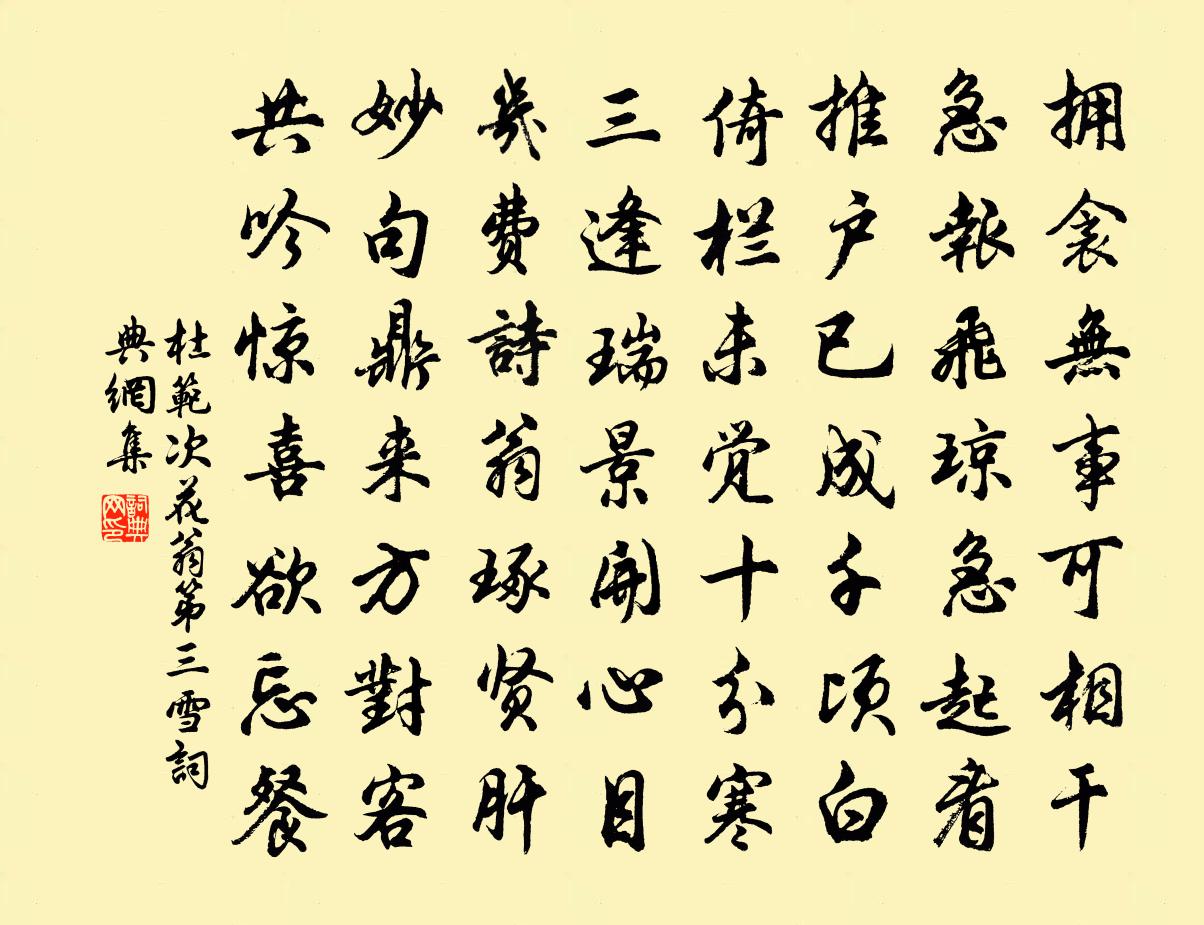 拥衾無事可相干
急報飛琼急起看
推户已成千顷白
倚栏未觉十分寒
三逢瑞景開心目
幾费詩翁琢贤肝
妙句鼎来方對客
共吟惊喜欲忘餐
杜範次花翁第三雪詞
典網集
詞典
网印